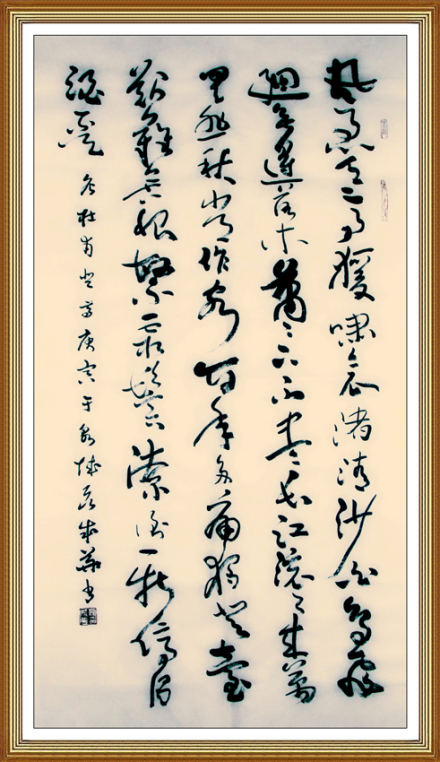 風急天高猿嘯哀渚清沙白鳥飛
迴無邊落木蕭々下不盡長江滾々來萬
里悲秋常作客百年多病獨登臺
艱難苦恨繁霜鬢潦倒新停濁
酒盃
杜甫登高庚寅于 城 書